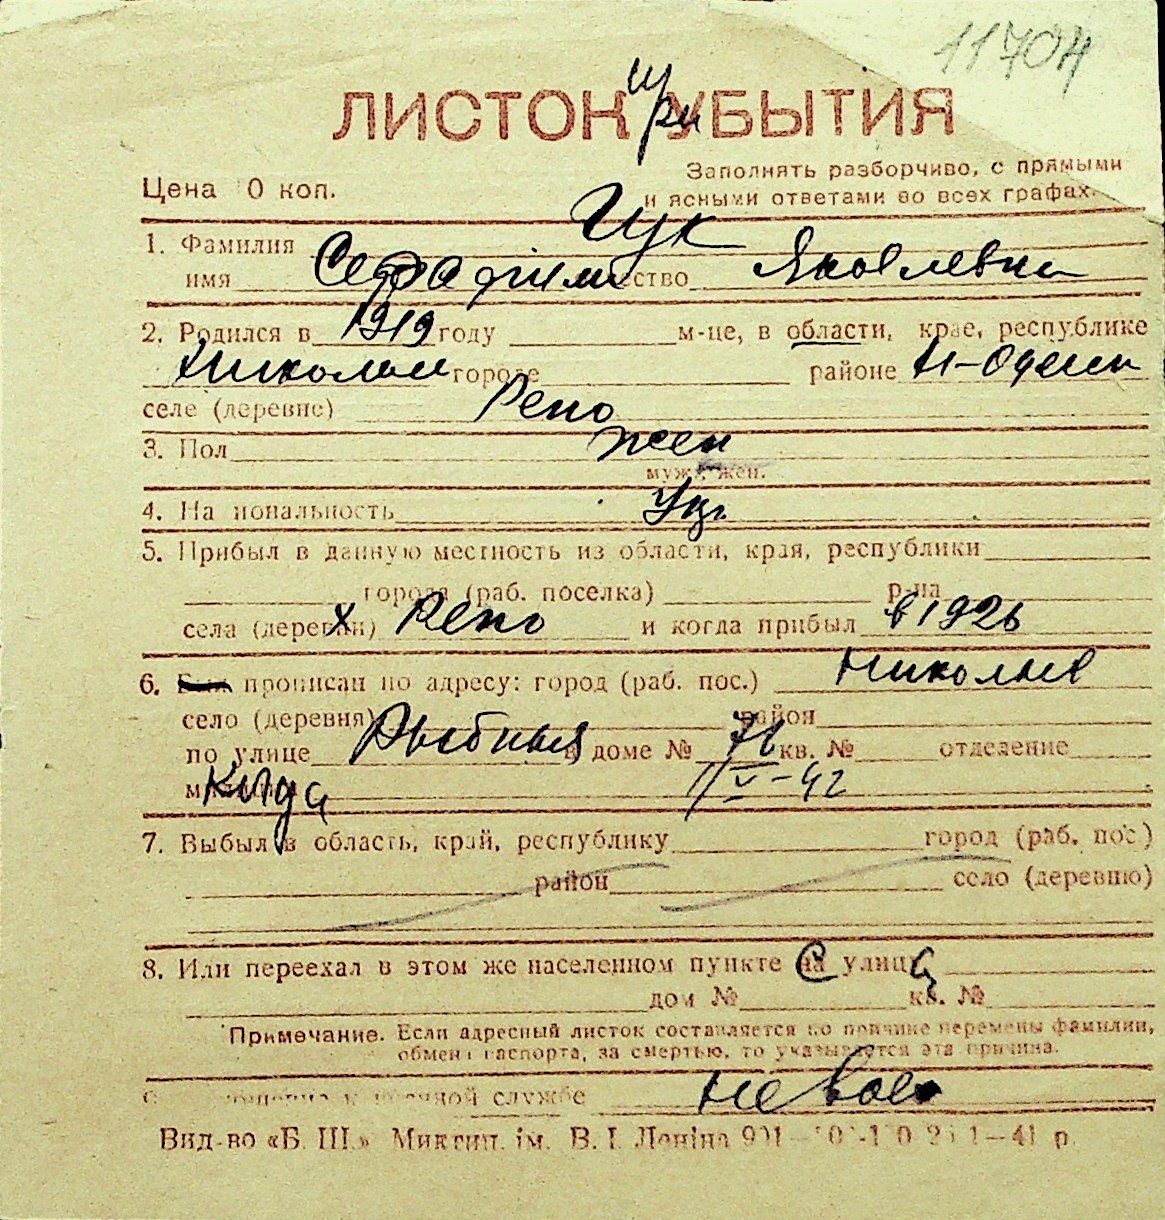 11704
ЛИСТОК при УБЫТИЯ
Заполнять разборчиво, с прямыми
Цена 0 коп. и ясными ответами во всех графах.
1. Фамилия Гук
имя Серафима отчество Яковлевна
2. Родился в 1919 году м-це, в области, крае, республике
Николаев городе районе Н-Одесск
селе (деревне) Репо
3. Пол жен
муж., жен.
4. Национальность Укр.
5. Прибыл в данную местность из области, края, республики
города (раб. поселка) р-на
села (деревни) х Репо и когда прибыл в 1926
6. прописан по адресу: город (раб. пос.) Николаев
село (деревня) район
по улице Рыбная в доме № 76 кв. № отделение
милиции Куда 1/V-42
7. Выбыл в область, край, республику город (раб. пос)
район село (деревню)
8. Или переехал в этом же населенном пункте на С улицу
дом № кв. №
Примечание. Если адресный листок составляется по причине перемены фамилии,
обмена паспорта, за смертью, то указывается эта причина.
отношение к военной службе не воен
Вид-во «Б. Ш.» Микгип. ім. В. І. Леніна 1—41 р.